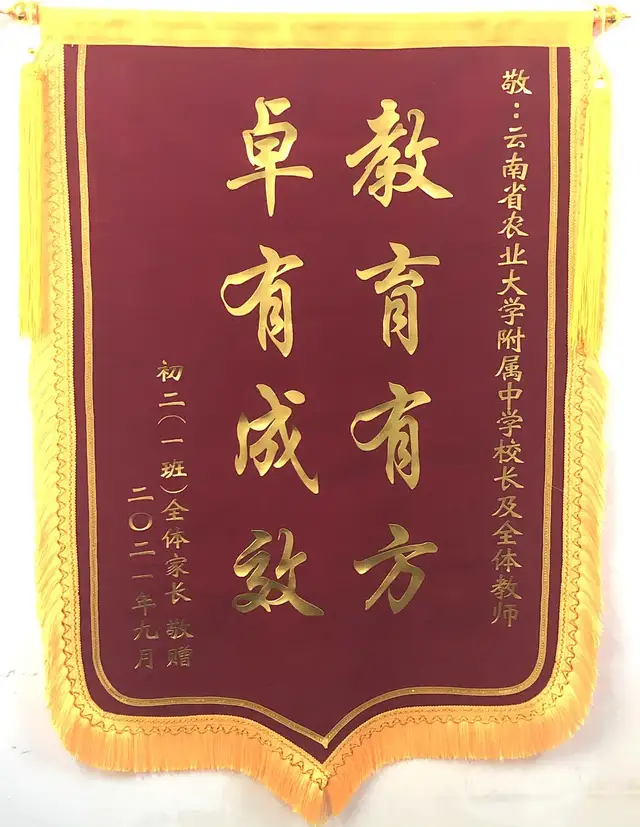 敬：云南省农业大学附属中学校长及全体教师
教育有方
卓有成效
初二（一班）全体家长 敬赠
二〇二一年九月